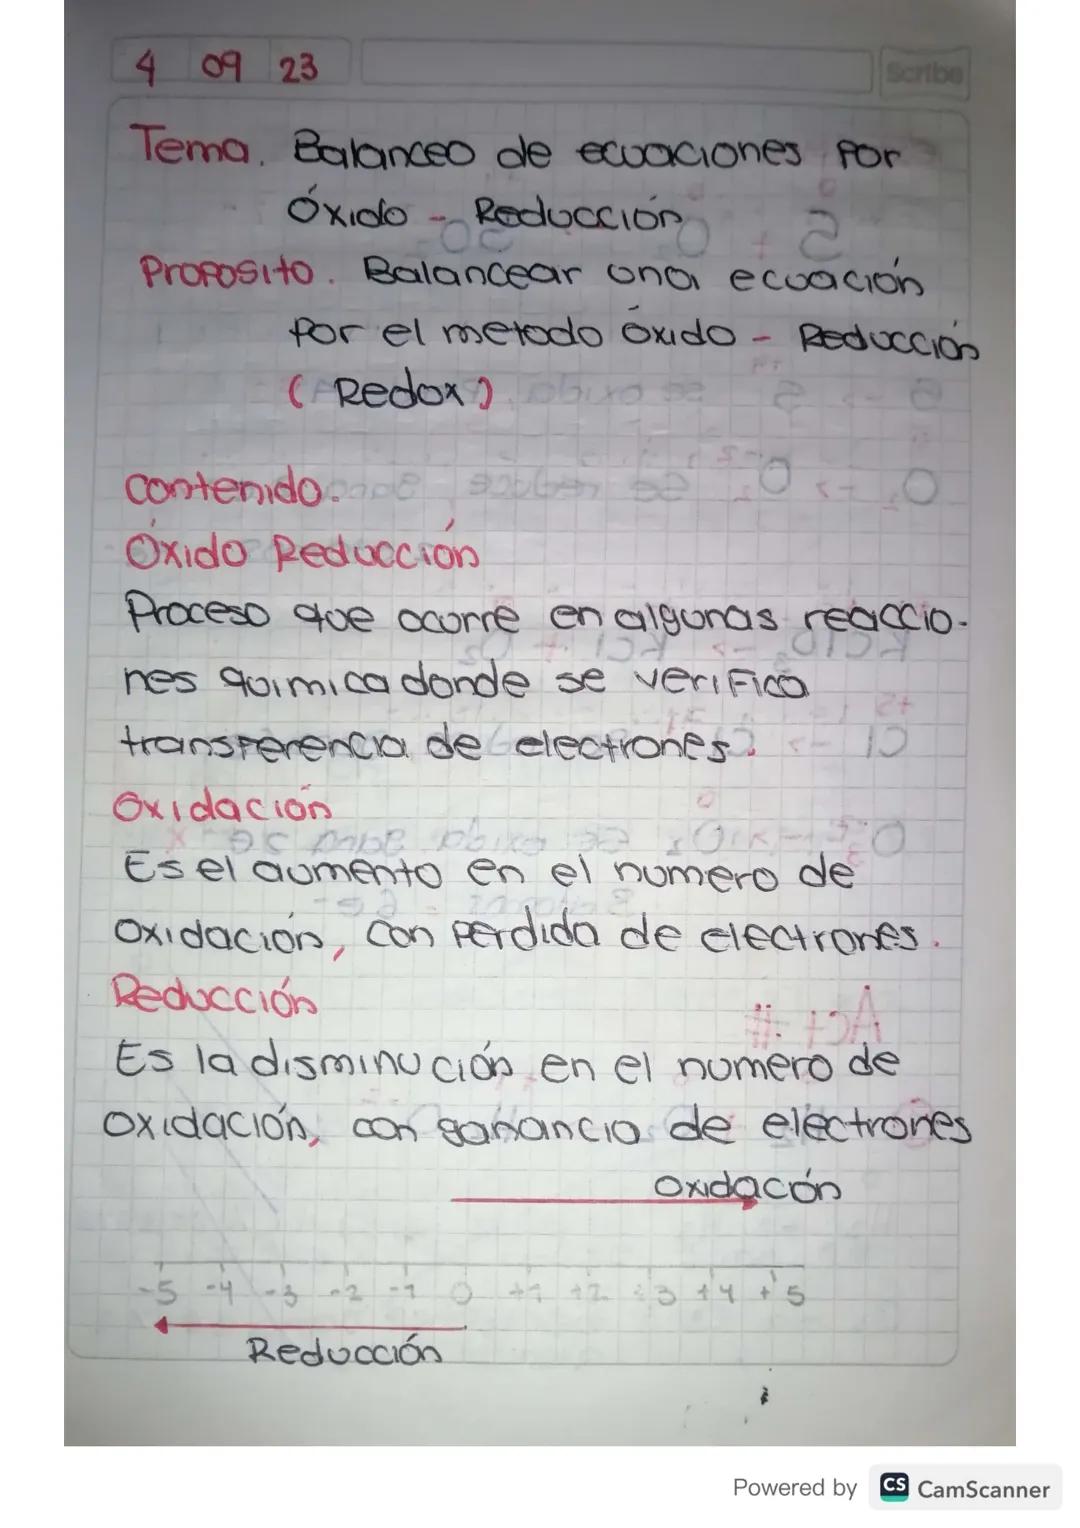 4 09 23
Scribe
Tema. Balanceo de ecuaciones por
Óxido - Reducción
Proposito. Balancear una ecuación
por el metodo óxido - Reducción
(Redox)
contenido.
Óxido Reducción
Proceso que ocurre en algunas reaccio-
nes quimica donde se verifica
transferencia de electrones.
Oxidación
Es el aumento en el numero de
oxidación, con perdida de electrones.
Reducción
Es la disminución en el numero de
oxidación, con ganancia de electrones
oxidacón
-5 -4 -3 -2 -1 0 +1 +2 +3 +4 +5
Reducción
Powered by CS CamScanner